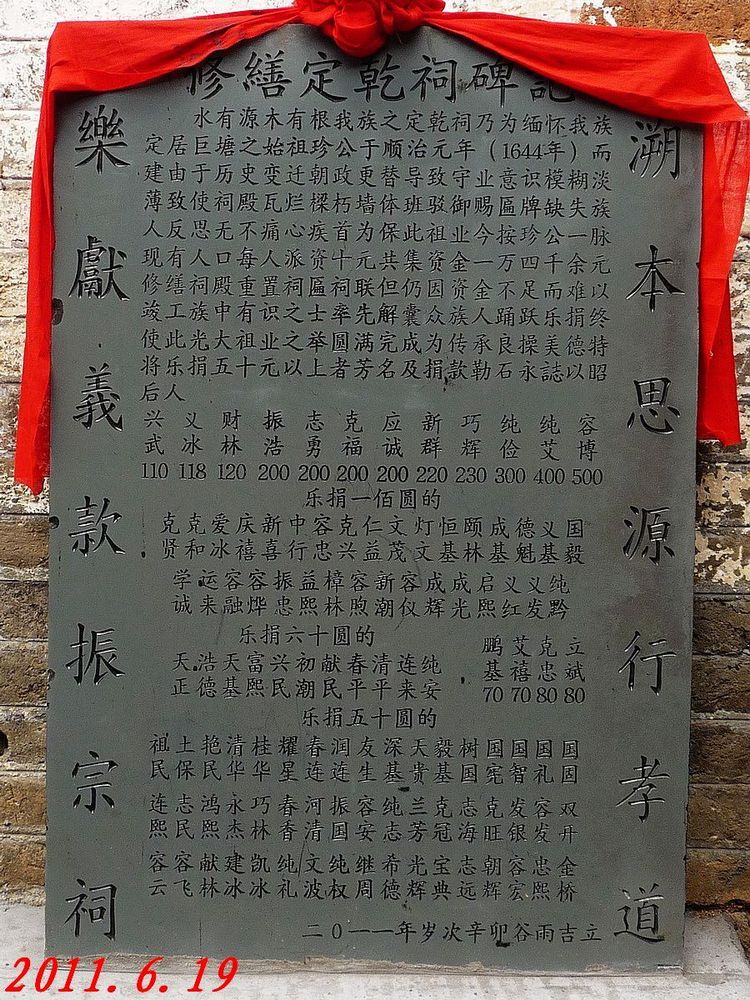 修繕定乾祠碑記
溯本思源行孝道
水有源木有根我族之定乾祠乃为缅怀我族
定居巨塘之始祖珍公于顺治元年（1644年）而
建由于历史变迁朝政更替导致守业意识模糊淡
薄致使祠殿瓦烂樑朽墙体班驳御赐匾牌缺失族
人反思无不痛心疾首为保此祖业今按珍公一脉
现有人口每人派资十元共集资金一万四千余元
修缮祠殿重置祠匾祠联但仍因资金不足而难以
竣工族中有识之士率先解囊众族人踊跃乐捐终
使此光大祖业之举圆满完成为传承良操美德特
将乐捐五十元以上者芳名及捐款勒石永誌以昭
后人
兴 义 财 振 志 克 应 新 巧 纯 纯 容
武 冰 林 浩 勇 福 诚 群 辉 俭 艾 博
110 118 120 200 200 200 200 220 230 300 400 500
乐捐一佰圆的
克 克 爱 庆 新 中 容 克 仁 文 灯 恒 颐 成 德 义 国
贤 和 冰 禧 喜 行 忠 兴 益 茂 文 基 林 基 魁 基 毅
学 运 容 容 振 益 樟 容 新 容 成 成 启 义 义 纯
诚 来 融 烨 忠 熙 林 煦 潮 仪 辉 光 熙 红 发 黔
乐捐六十圆的
天 浩 天 富 兴 初 献 春 清 连 纯
正 德 基 熙 民 潮 民 平 平 来 安
鹏 艾 克 立
基 禧 忠 斌
70 70 80 80
乐捐五十圆的
祖 土 艳 清 桂 耀 春 润 友 深 天 毅 树 国 国 国 国
民 保 民 华 华 星 连 连 生 基 贵 基 国 宪 智 礼 固
连 志 鸿 永 巧 春 河 振 容 纯 兰 克 志 克 发 容 双
熙 民 熙 杰 林 香 清 国 安 志 芳 冠 海 旺 银 发 开
容 容 献 建 凯 纯 文 纯 继 希 光 宝 志 朝 容 忠 金
云 飞 林 冰 冰 礼 波 权 周 德 辉 典 远 辉 宏 熙 桥
二0一一年岁次辛卯谷雨吉立
樂獻義款振宗祠
2011.6.19